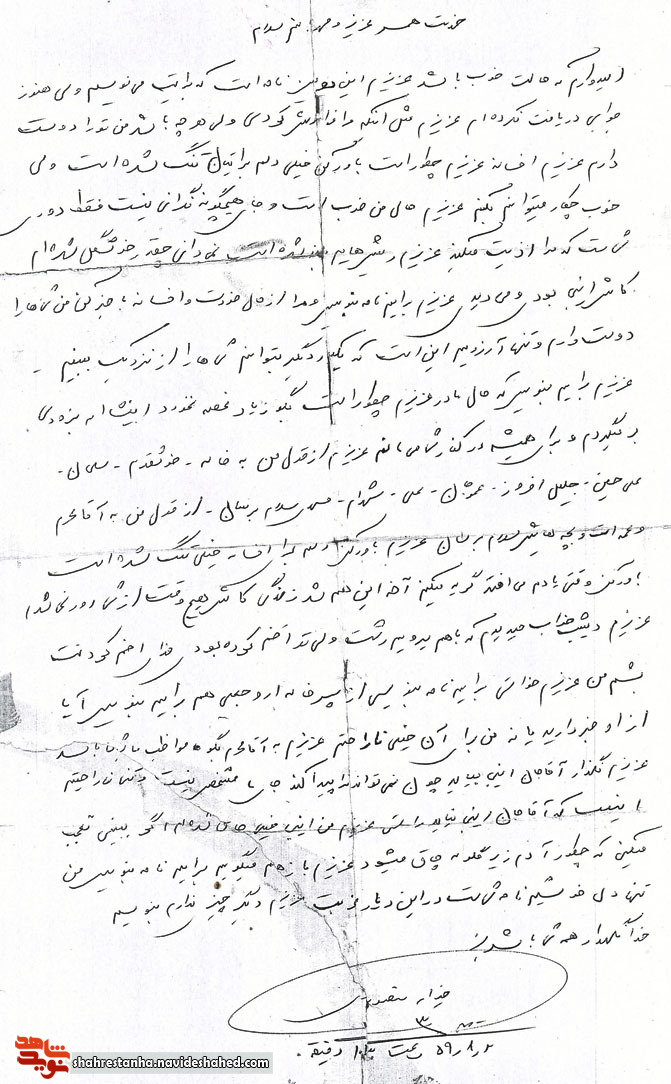 خدمت همسر عزیز و مهربانم سلام
امیدوارم که حالت خوب باشد عزیزم این دومین نامه است که برایت می نویسم ولی هنوز
جوابی دریافت نکرده ام عزیزم مثل اینکه مرا فراموش کردی ولی هر چه باشد من تو را دوست
دارم عزیزم افسانه عزیزم چطور است باور کن خیلی دلم برایتان تنگ شده است ولی
خوب چکار میتوانم بکنم عزیزم حال من خوب است و جای هیچگونه نگرانی نیست فقط دوری
شماست که مرا اذیت میکند عزیزم ریشهایم بلند شده است نمی دانی چقدر خوشگل شده ام
کاش اینجا بودی و می دیدی عزیزم برایم نامه بنویس و مرا از حال خودت و افسانه با خبر کن من شما را
دوست دارم و تنها آرزویم این است که یکبار دیگر بتوانم شما را از نزدیک ببینم -
عزیزم برایم بنویس که حال مادر عزیزم چطور است بگو زیاد غصه نخورد انشاءاله بزودی
بر میگردم و برای همیشه در کنارش می مانم عزیزم از قول من به خاله - خوشقدم -
علی حسین - جلیل افروز - عموجان - علی - شهرام - سلام برسان - از قول من به آقا محرم
و بچه هایش سلام برسان عزیزم باور کن دلم برای افسانه خیلی تنگ شده است
باور کن وقتی یادم می افتد گریه میکنم آخه این هم شد زندگی کاش هیچ وقت از شما دور نمی شدم
عزیزم دیشب خواب میدیدم که با هم بودیم رشت ولی تو اخم کرده بودی فدای اخم کردنت
بشم من عزیزم خداش برایم نامه بنویس از پسر خاله ام رجبعلی هم برایم بنویس آیا
از او خبر دارید یا نه من برای آن خیلی ناراحتم عزیزم به آقا محرم بگو مواظب باشد
عزیزم نگذار آقاجان اینجا بیاید چون نمی تواند مرا پیدا کند جای ما مشخص نیست وقتی ناراحتیم
اینست که آقاجان اینجا نیاید راستی عزیزم من اینجا خیلی چاق شده ام اگر ببینی تعجب
میکنی که چطور آدم زیر گلوله چاق میشود عزیزم باز هم میگویم برایم نامه بنویس من
تنها دل خوشیم نامه شماست در این دیار غربت عزیزم دیگر چیزی ندارم بنویسم
خدا نگهدار همه شما باشد
۵۹٫۸٫۲ ساعت دقیقه
شاهد
نوید
shahrestanha.navideshahed.com